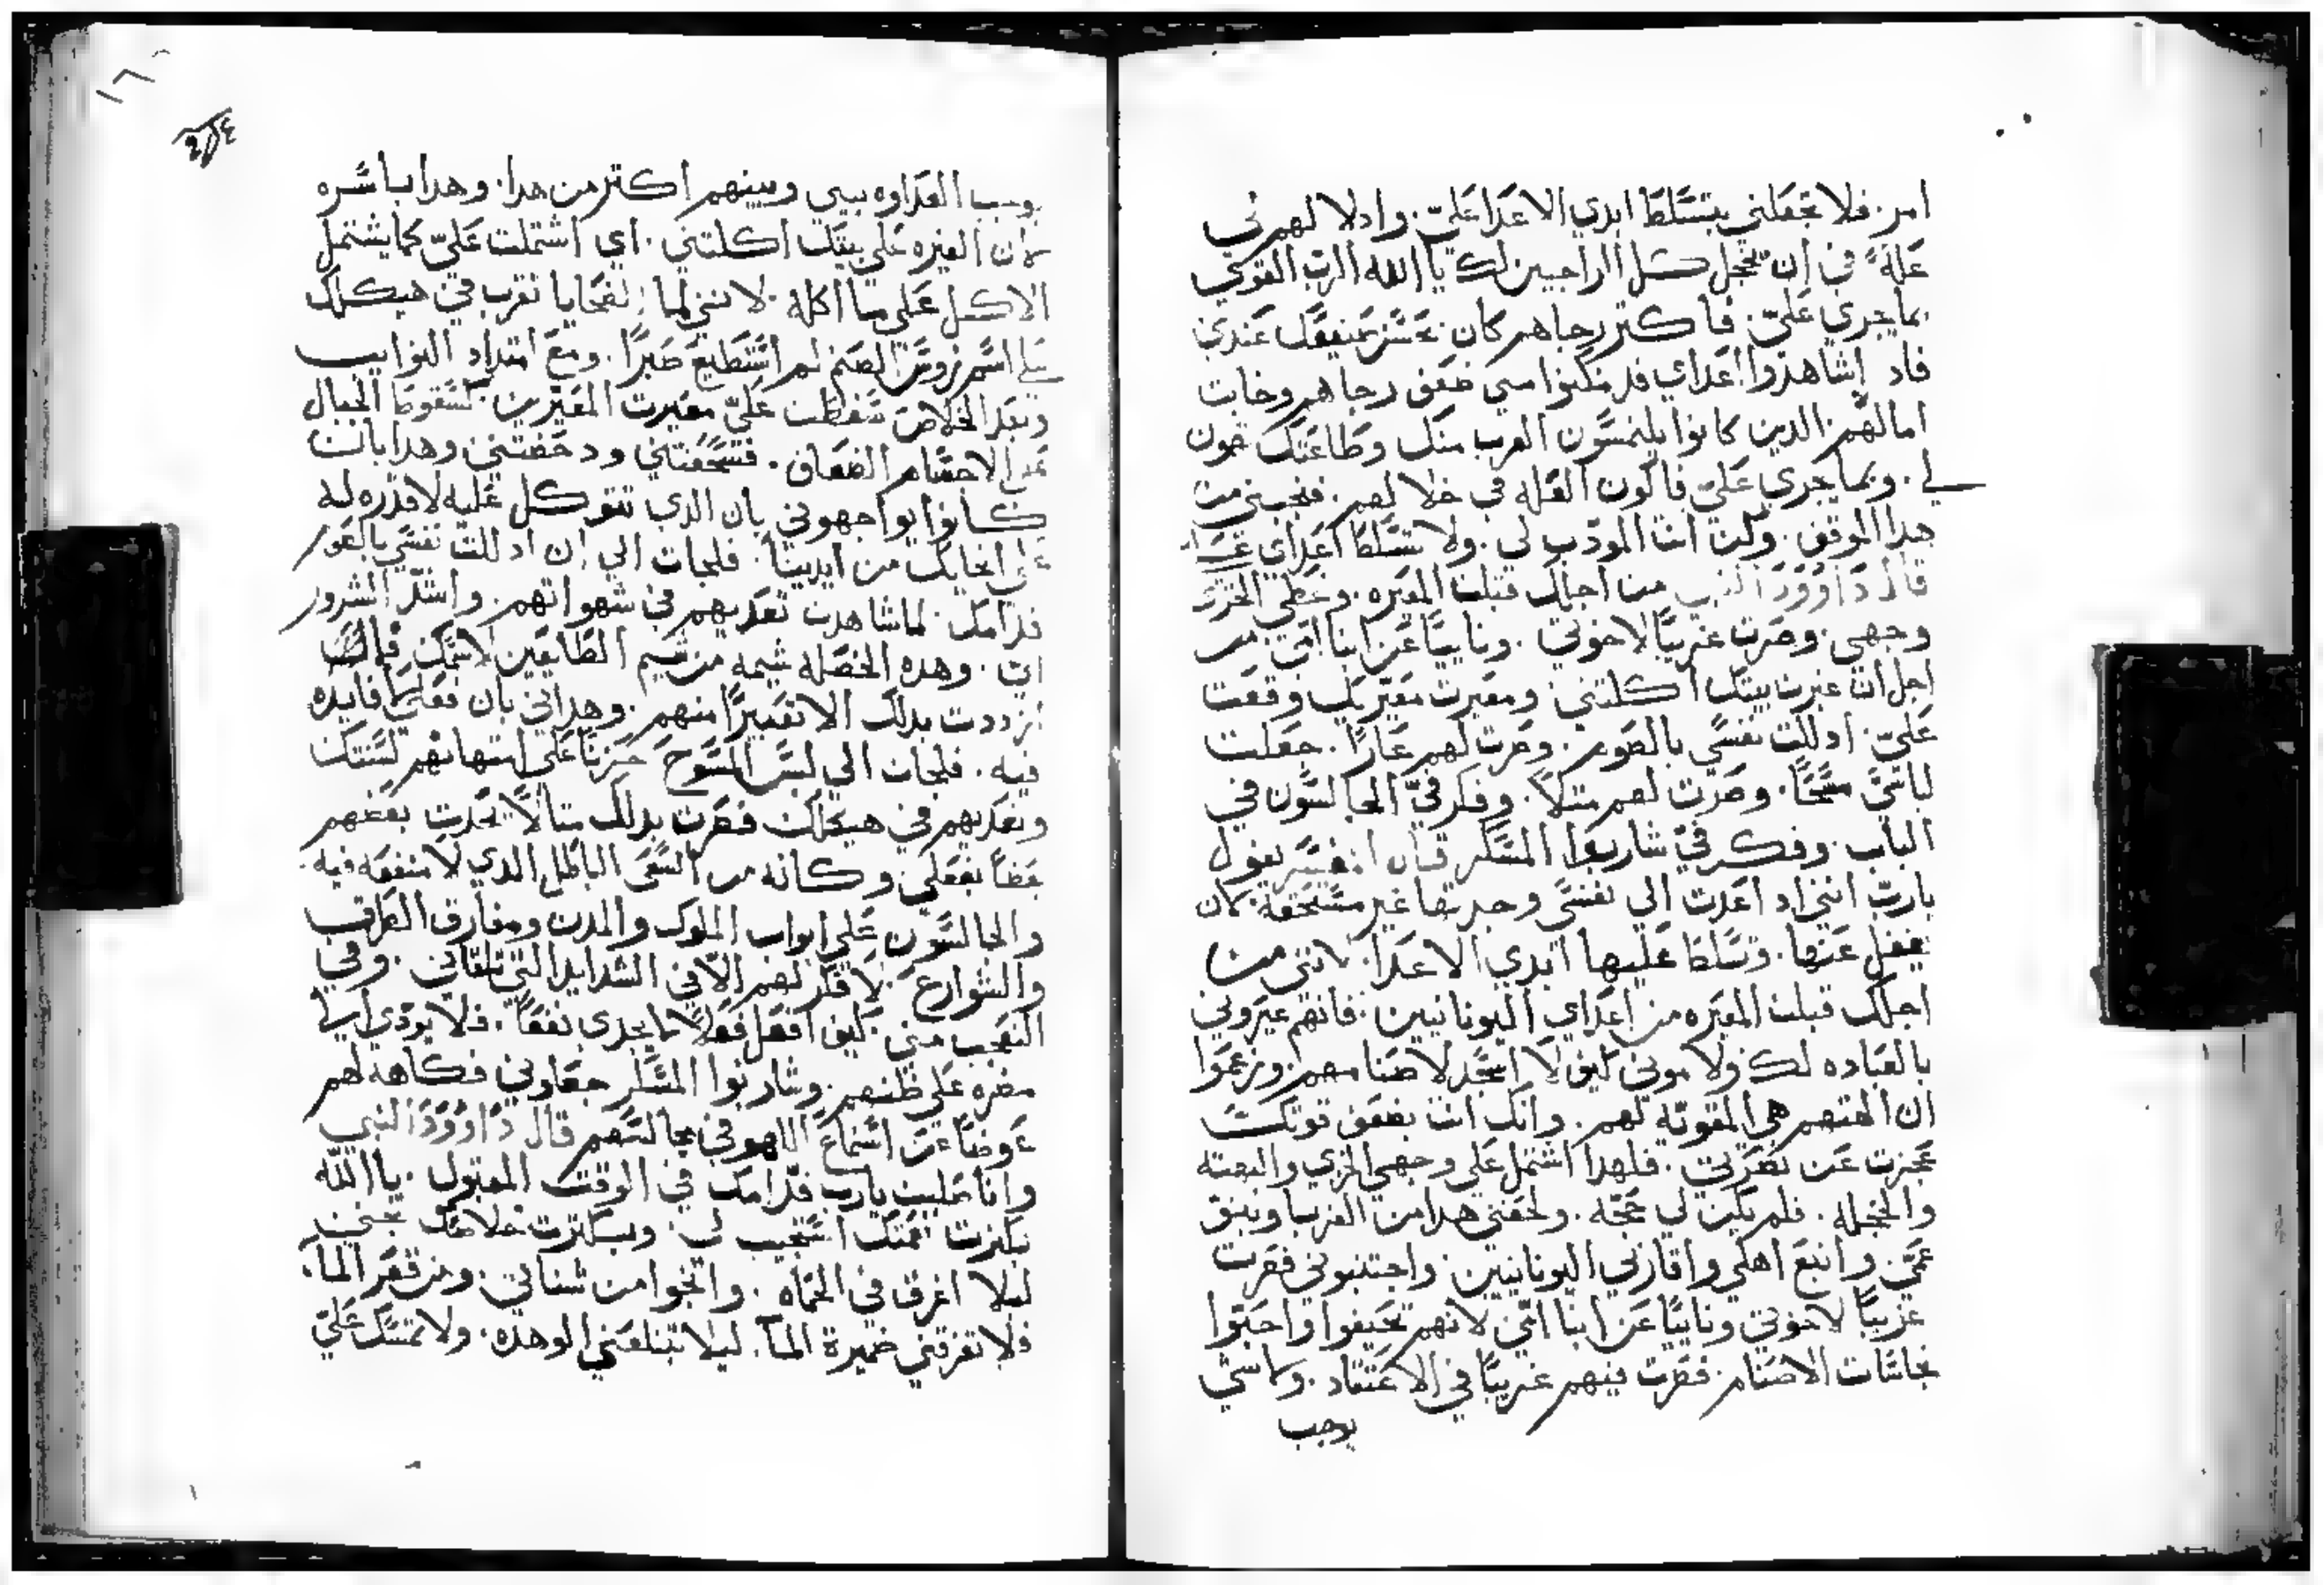 امر. فلا تجعلني بتسلط ايدي الاعدا عليّ. وادلالهم لي
علةً في ان يخجل كل الراجيين لك يا الله الرب القوي
بما يجري عليّ. فاكتر رجاهم كان عندي
فاد اشاهدوا اعداي قد تمكنوا مني ضعف رجاهم وخابت
امالهم الدين كانوا يلتمسون القرب منك وطاعتك
لي. وبما يجري عليّ فاكون العله في خلالهم. فنجيني من
هدا الموقف. وكن انت المودب لي. ولا تسلط اعداي
قال داوود النبي من اجلك قبلت المعيره. وغطي الخزي
وجهي. وصرت غريبًا لاخوتي. ونابيًا عن ابنا امي. من
اجل ان غيرت بيتك اكلتني ومعيرت معيريك وقعت
عليّ. ادللت نفسي بالصوم. وصرت لهم عارًا. جعلت
لباسي مسحًا. وصرت لهم متلاً. وفكر فيّ الجالسون في
الباب. وفكر فيّ شاربوا المسكر قال المفسر يقول
يارب انني اد اعدت الي نفسي وجدتها غير مستحقه بان
يغفل عنها. وتسلط عليها ايدي الاعدا. لانني من
اجلك قبلت المعيره من اعداي اليونانيين. فانهم عيروني
بالعباده لك ولاموني كيف لا اسجد لاصنامهم. وزعموا
ان الهتهم هي المقويّه لهم. وانك انت بضعف قوتك
عجزت عن نصرتي. فلهدا اشتمل علي وجهي الخزي والبهته
والخجله. فلم يكن لي حجه. ولحقني هدا من الغربا
عمي. واتبع اهلي واقاربي اليونانيين. واجتنبوني فصرت
غريبًا لاخوتي ونابيًا عن ابنا امي لانهم تحنيفوا واحبّوا
نجاسات الاصنام. فصرت فيهم غريبًا في الاعتقاد. وما شي
يوجب
يوجب العداوه بيني وبينهم اكتر من هدا. وهدا باسره
لان الغيره علي بيتك اكلتني. اي اشتملت عليّ كما يشتمل
الاكل علي ما اكله. لانني لما الضحايا تقرب في هيكلك
علي اسم زوس الصنم لم استطيع صبرًا. ومع امتداد النوايب
وبعد الخلاص سقطت عليّ معيرت المعيّرين كسقوط الجبال
علي الاجسام الضعاف. فسحقتني ودحضتني وهدا بان
كانوا يواجهوني بان الدي تتوكل عليه لا قدره له
علي انجايك من ايدينا. فلجات الي ان ادللت نفسي بالصوم
قدامك. لما شاهدت تعديهم في شهواتهم. واستلد الشرور
وهده الخصله شيمه من شيم الطايعين لاسمك
ازددت بدلك الا تعييرًا منهم. وهداني بان فعلي لا فايده
فيه. فلجات الي لبس المسوح حزنًا علي انتهاكهم لسنتك
وتعديهم في هيكلك فصرت بدلك متالاً تحدت بعضهم
بعضًا بفعلي. وكانه من السعي الباطل الدي لا منفعه فيه.
والجالسون علي ابواب الملوك والمدن ومفارق الطرقات
والشوارع. لا فكر لهم الا في الشدايد التي تلقاني. وفي
التعجب مني. كيف افعل فعلاً ما يجدي نفعًا. فلا يودي
مضره علي ظنهم. وشاربوا المسكر جعلوني فكاهه لهم
عوضًا عن استماع اللهو في مجالسهم قال داوود النبي
وانا صليت يارب قدامك في الوقت المقبول. يا الله
بكترت نعمتك استجيب لي وبكترت خلاصك نجني
ليلا اغرق في الحماه. وانجوا من شناتي. ومن قعر الما.
فلا تغرقني ضميرة الما. ليلا تبتلعني الوهده. ولا تمسك عليّ